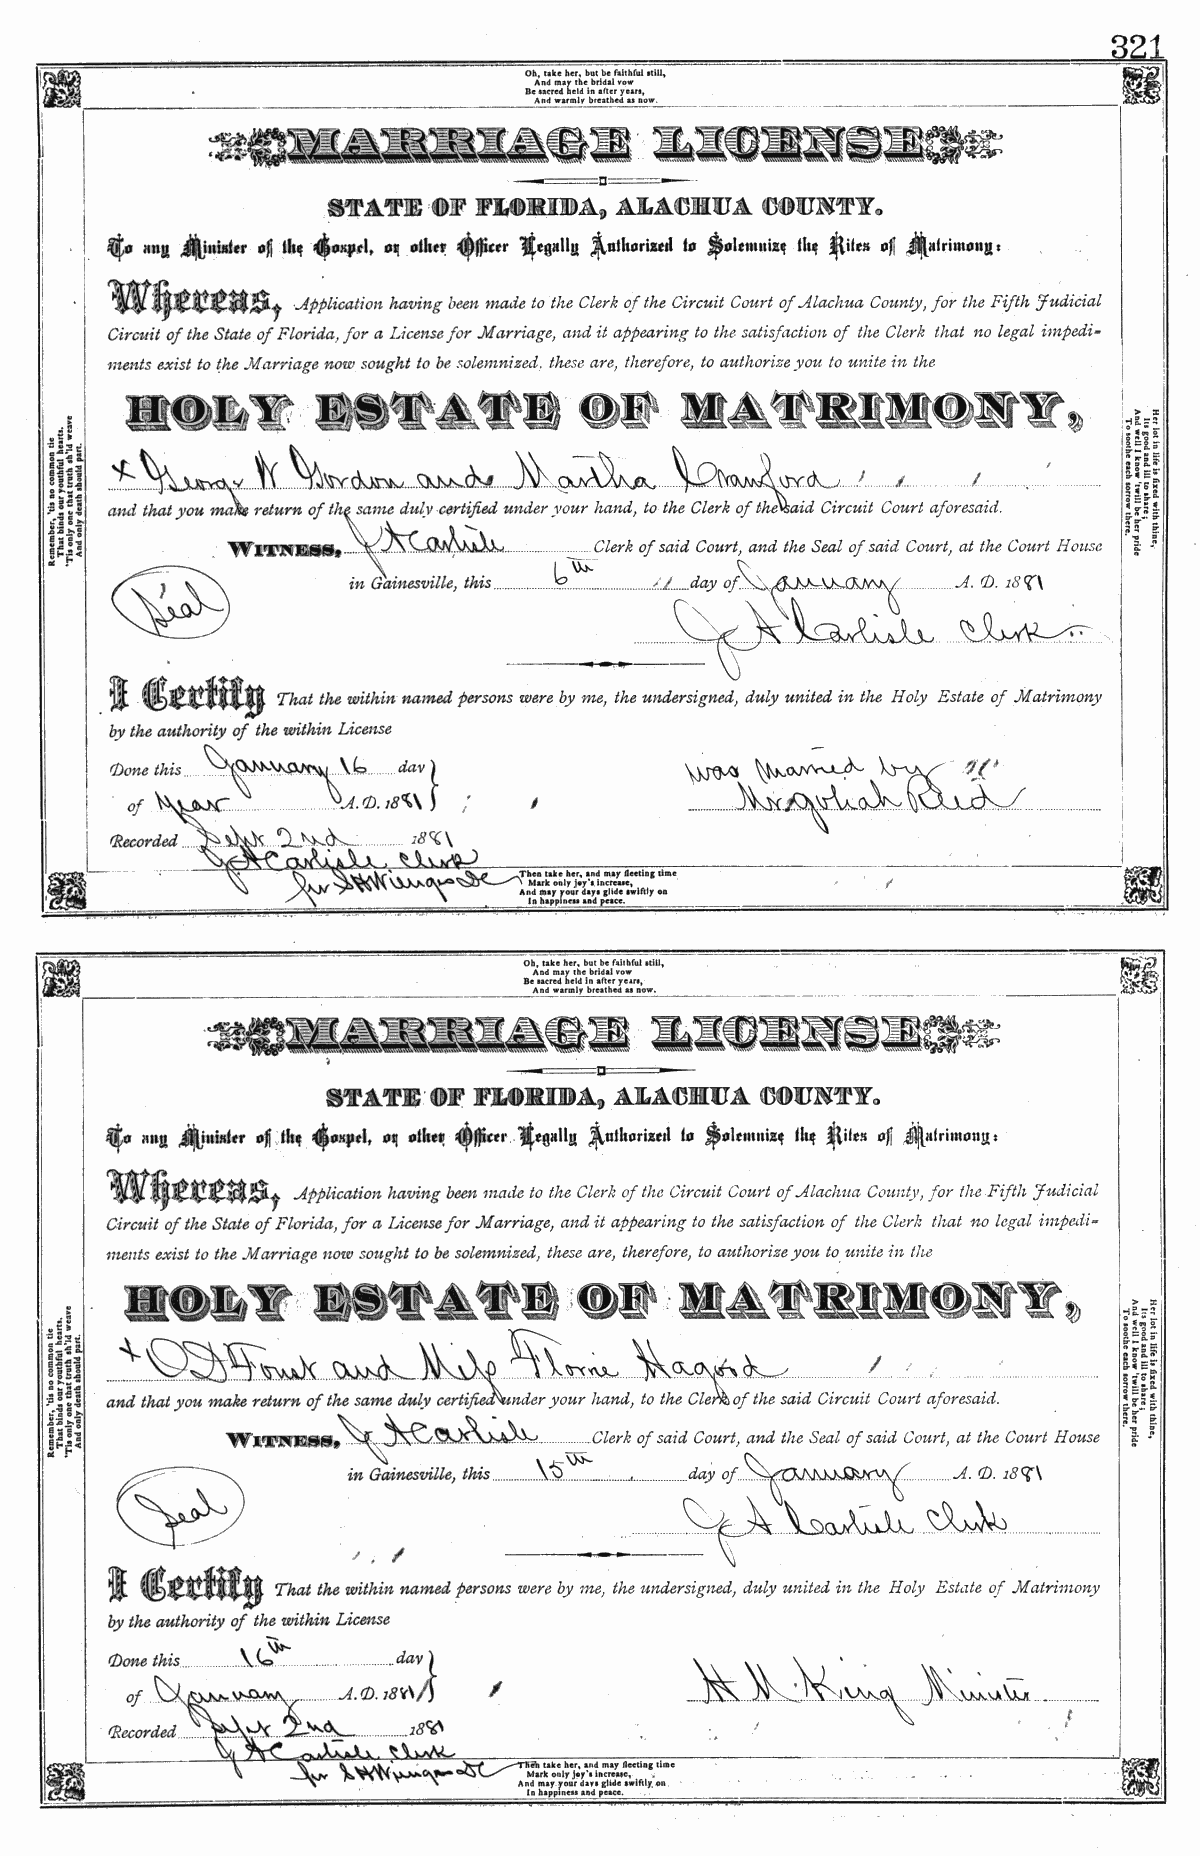 321
Oh, take her, but be faithful still,
And may the bridal vow
Be sacred held in after years,
And warmly breathed as now.
MARRIAGE LICENSE
STATE OF FLORIDA, ALACHUA COUNTY.
To any Minister of the Gospel, or other Officer Legally Authorized to Solemnize the Rites of Matrimony:
Whereas, Application having been made to the Clerk of the Circuit Court of Alachua County, for the Fifth Judicial
Circuit of the State of Florida, for a License for Marriage, and it appearing to the satisfaction of the Clerk that no legal impedi-
ments exist to the Marriage now sought to be solemnized, these are, therefore, to authorize you to unite in the
HOLY ESTATE OF MATRIMONY,
x George W Gordon and Martha Crawford
and that you make return of the same duly certified under your hand, to the Clerk of the said Circuit Court aforesaid.
WITNESS, J A Carlisle Clerk of said Court, and the Seal of said Court, at the Court House
in Gainesville, this 6th day of January A. D. 1881
Seal
J A Carlisle Clerk
I Certify That the within named persons were by me, the undersigned, duly united in the Holy Estate of Matrimony
by the authority of the within License
Done this January 16 day
of year A. D. 1881
was married by
Mr goliah Reed
Recorded Sept 2nd 1881
J A Carlisle Clerk
per
Then take her, and may fleeting time
Mark only joy's increase,
And may your days glide swiftly on
In happiness and peace.
Remember, 'tis no common tie
That binds our youthful hearts,
'Tis only one that truth sh'ld weave
And only death should part.
Her lot in life is fixed with thine,
Its good and ill to share;
And well I know 'twill be her pride
To soothe each sorrow there.
Oh, take her, but be faithful still,
And may the bridal vow
Be sacred held in after years,
And warmly breathed as now.
MARRIAGE LICENSE
STATE OF FLORIDA, ALACHUA COUNTY.
To any Minister of the Gospel, or other Officer Legally Authorized to Solemnize the Rites of Matrimony:
Whereas, Application having been made to the Clerk of the Circuit Court of Alachua County, for the Fifth Judicial
Circuit of the State of Florida, for a License for Marriage, and it appearing to the satisfaction of the Clerk that no legal impedi-
ments exist to the Marriage now sought to be solemnized, these are, therefore, to authorize you to unite in the
HOLY ESTATE OF MATRIMONY,
x O D Foust and Miss Florrie Hagood
and that you make return of the same duly certified under your hand, to the Clerk of the said Circuit Court aforesaid.
WITNESS, J A Carlisle Clerk of said Court, and the Seal of said Court, at the Court House
in Gainesville, this 15th day of January A. D. 1881
Seal
J A Carlisle Clerk
I Certify That the within named persons were by me, the undersigned, duly united in the Holy Estate of Matrimony
by the authority of the within License
Done this 16th day
of January A. D. 1881
H M. King Minister
Recorded Sept 2nd 1881
J A Carlisle Clerk
per
Then take her, and may fleeting time
Mark only joy's increase,
And may your days glide swiftly on
In happiness and peace.
Remember, 'tis no common tie
That binds our youthful hearts,
'Tis only one that truth sh'ld weave
And only death should part.
Her lot in life is fixed with thine,
Its good and ill to share;
And well I know 'twill be her pride
To soothe each sorrow there.